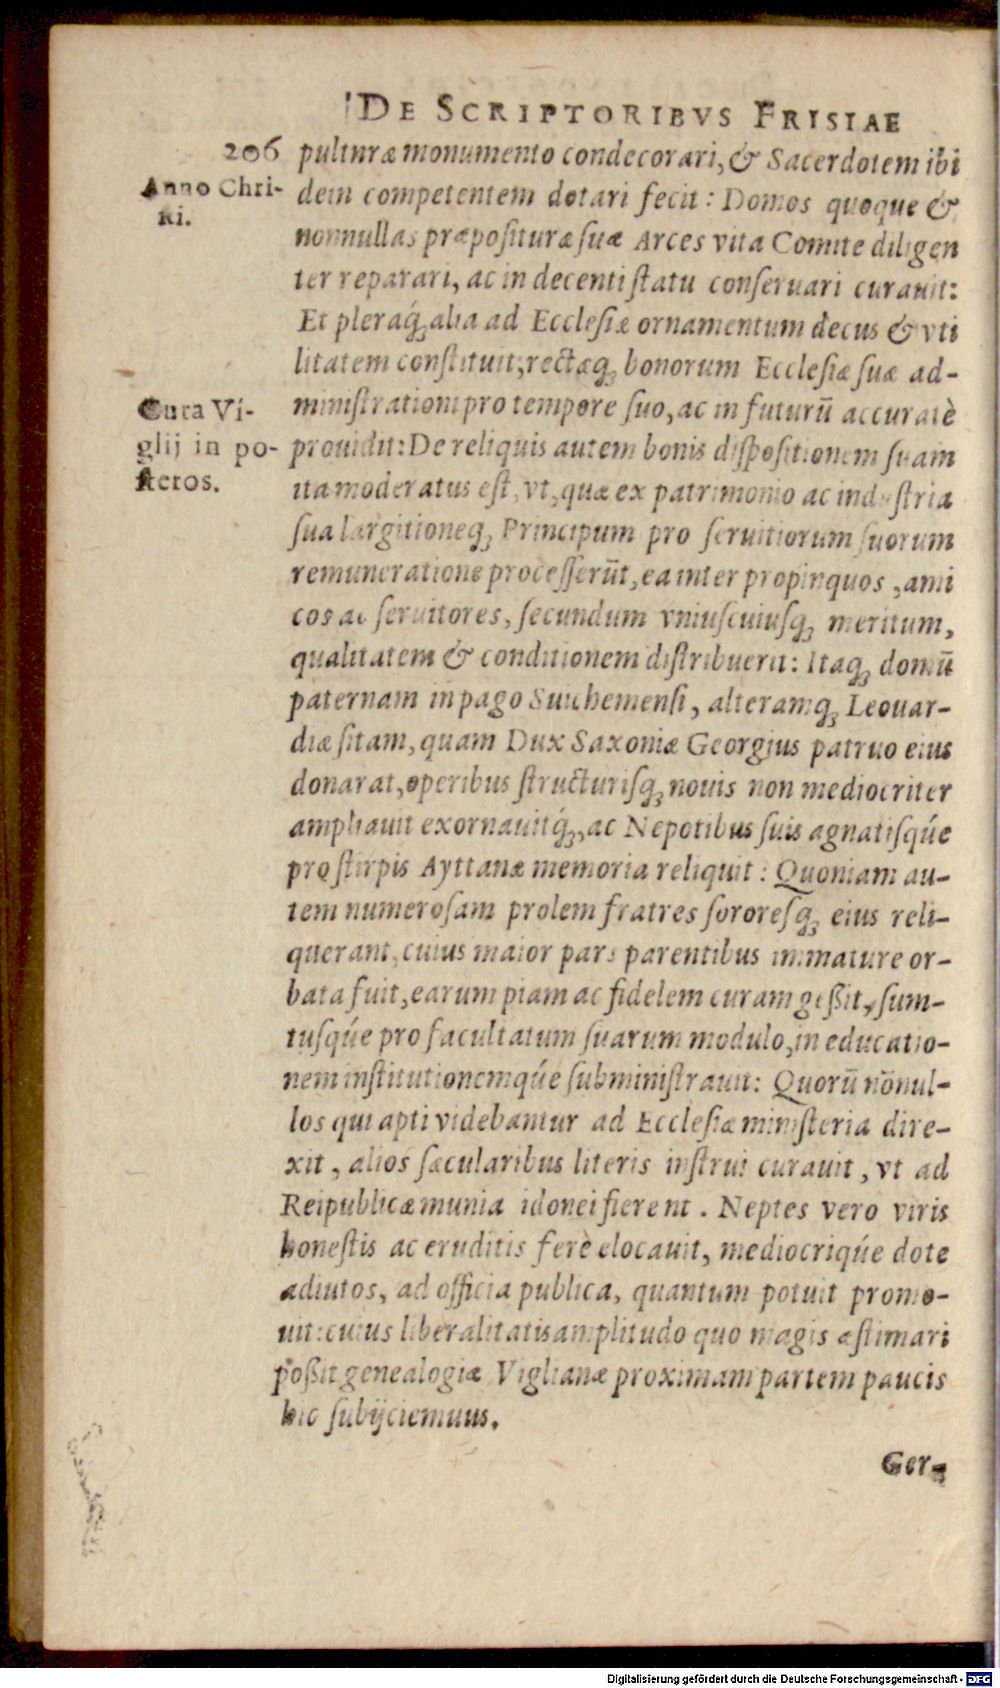 DE SCRIPTORIBVS FRISIAE
206
Anno Chri-
sti.
pulturæ monumento condecorari, & Sacerdotem ibi
dem competentem dotari fecit: Domos quoque &
nonnullas præposituræ suæ Arces vita Comite diligen
ter reparari, ac in decenti statu conseruari curauit:
Et pleraq́ꝫ alia ad Ecclesiæ ornamentum decus & vti
litatem constituit; rectæqꝫ bonorum Ecclesiæ suæ ad-
ministrationi pro tempore suo, ac in futurū accuratè
Cura Vi-
glij in po-
steros.
prouidit: De reliquis autem bonis dispositionem suam
ita moderatus est, vt, quæ ex patrimonio ac industria
sua largitioneqꝫ Principum pro seruitiorum suorum
remuneratione processerūt, ea inter propinquos, ami
cos ac seruitores, secundum vniuscuiusqꝫ meritum,
qualitatem & conditionem distribuerit: Itaqꝫ domū
paternam in pago Suichemensi, alteramqꝫ Leouar-
diæ sitam, quam Dux Saxoniæ Georgius patruo eius
donarat, operibus structurisqꝫ nouis non mediocriter
ampliauit exornauitq́ꝫ, ac Nepotibus suis agnatisqúe
pro stirpis Ayttanæ memoria reliquit: Quoniam au-
tem numerosam prolem fratres sororesqꝫ eius reli-
querant, cuius maior pars parentibus immature or-
bata fuit, earum piam ac fidelem curam geßit, sum-
tusqúe pro facultatum suarum modulo, in educatio-
nem institutionemqúe subministrauit: Quorū nōnul-
los qui apti videbantur ad Ecclesiæ ministeria dire-
xit, alios sæcularibus literis instrui curauit, vt ad
Reipublicæ munia idonei fierent. Neptes vero viris
honestis ac eruditis ferè elocauit, mediocriqúe dote
adiutos, ad officia publica, quantum potuit promo-
uit: cuius liberalitatis amplitudo quo magis æstimari
poßit genealogiæ Viglianæ proximam partem paucis
hic subijciemuus.
Ger-
Digitalisierung gefördert durch die Deutsche Forschungsgemeinschaft - DFG